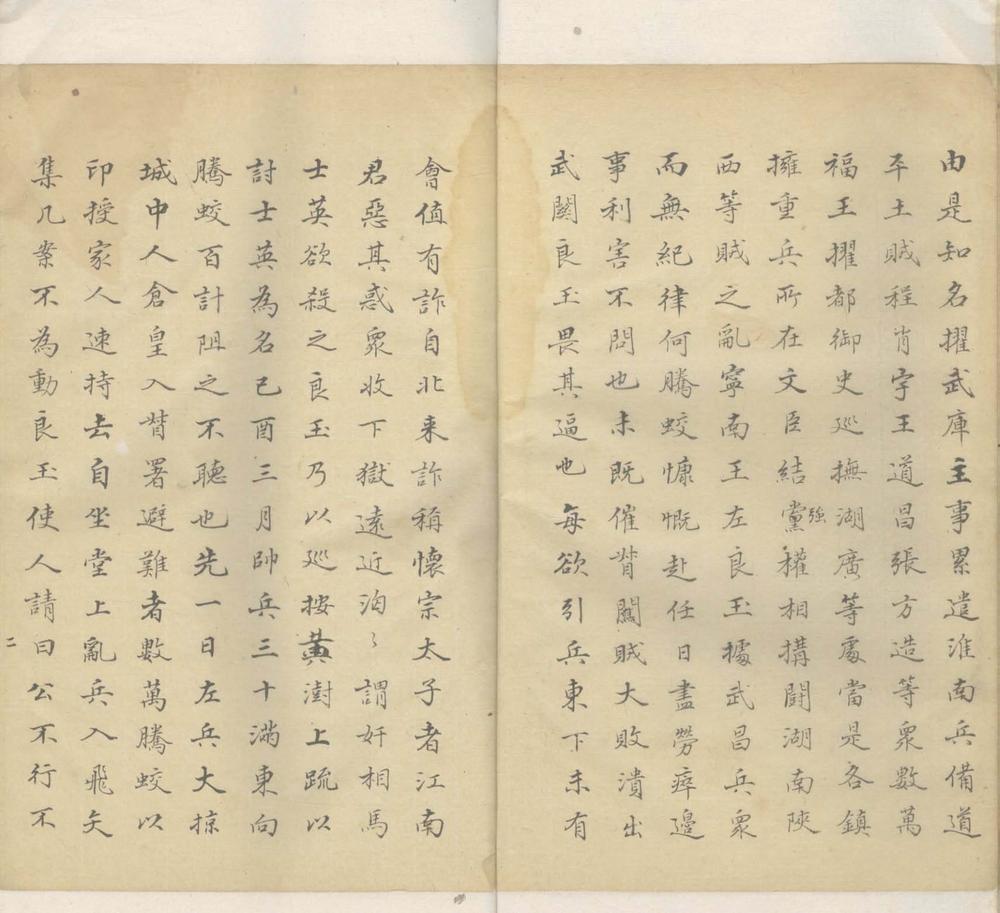 由是知名擢武庫主事累遷淮南兵備道
平土賊程肖宇王道昌張方造等衆數萬
福王擢都御史巡撫湖廣等處當是各鎮
擁重兵所在文臣結黨強權相搆鬪湖南陝
西等賊之亂寧南王左良玉據武昌兵衆
而無紀律何騰蛟慷慨赴任日盡勞瘁邊
事利害不問也未既催督闖賊大敗潰出
武關良玉畏其逼也每欲引兵東下未有
會值有詐自北来詐稱懷宗太子者江南
君惡其惑衆收下獄遠近洶〻謂奸相馬
士英欲殺之良玉乃以巡按黃澍上疏以
討士英為名己酉三月帥兵三十滿東向
騰蛟百計阻之不聽也先一日左兵大掠
城中人倉皇入督署避難者數萬騰蛟以
印授家人速持去自坐堂上亂兵入飛矢
集几案不為動良玉使人請曰公不行不
二